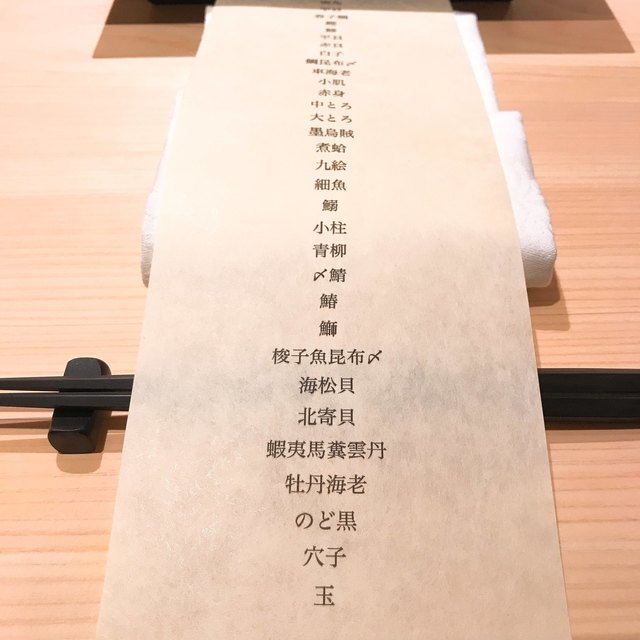 春子鯛
平目
赤貝
白子
鯛昆布〆
車海老
小肌
赤身
中とろ
大とろ
墨烏賊
煮蛤
九絵
細魚
鰯
小柱
青柳
〆鯖
鰆
鰤
梭子魚昆布〆
海松貝
北寄貝
蝦夷馬糞雲丹
牡丹海老
のど黒
穴子
玉